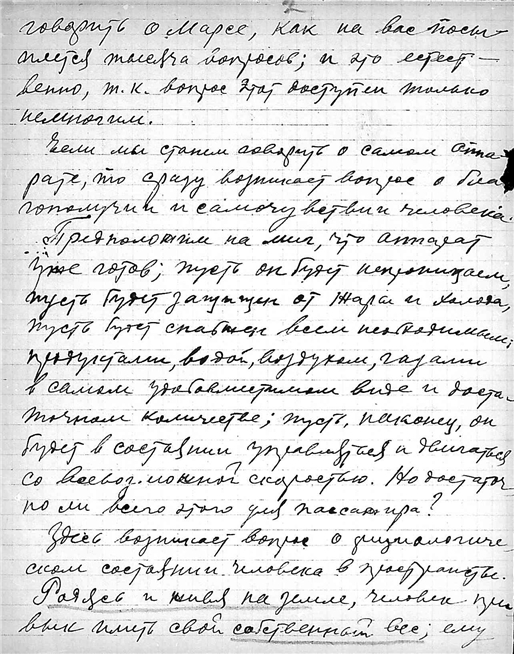 говорить о Марсе, как на вас посы-
плется тысяча вопросов; и это естест-
венно, т.к. вопрос этот доступен только
немногим.
Если мы станем говорить о самом аппа-
рате, то сразу возникает вопрос о бла-
гополучии и самочувствии человека.
Предположим на миг, что аппарат
уже готов; пусть он будет непроницаем,
пусть будет защищен от жары и холода,
пусть будет снабжен всеми необходимыми
продуктами, водой, воздухом, газами
в самом удобовместимом виде и доста-
точном количестве; пусть, наконец, он
будет в состоянии управляться и двигаться
со всевозможной скоростью. Но достаточ-
но ли всего этого для пассажира?
Здесь возникает вопрос о физиологиче-
ском состоянии человека в пространстве.
Родясь и живя на земле, человек при-
вык иметь свой собственный вес; ему